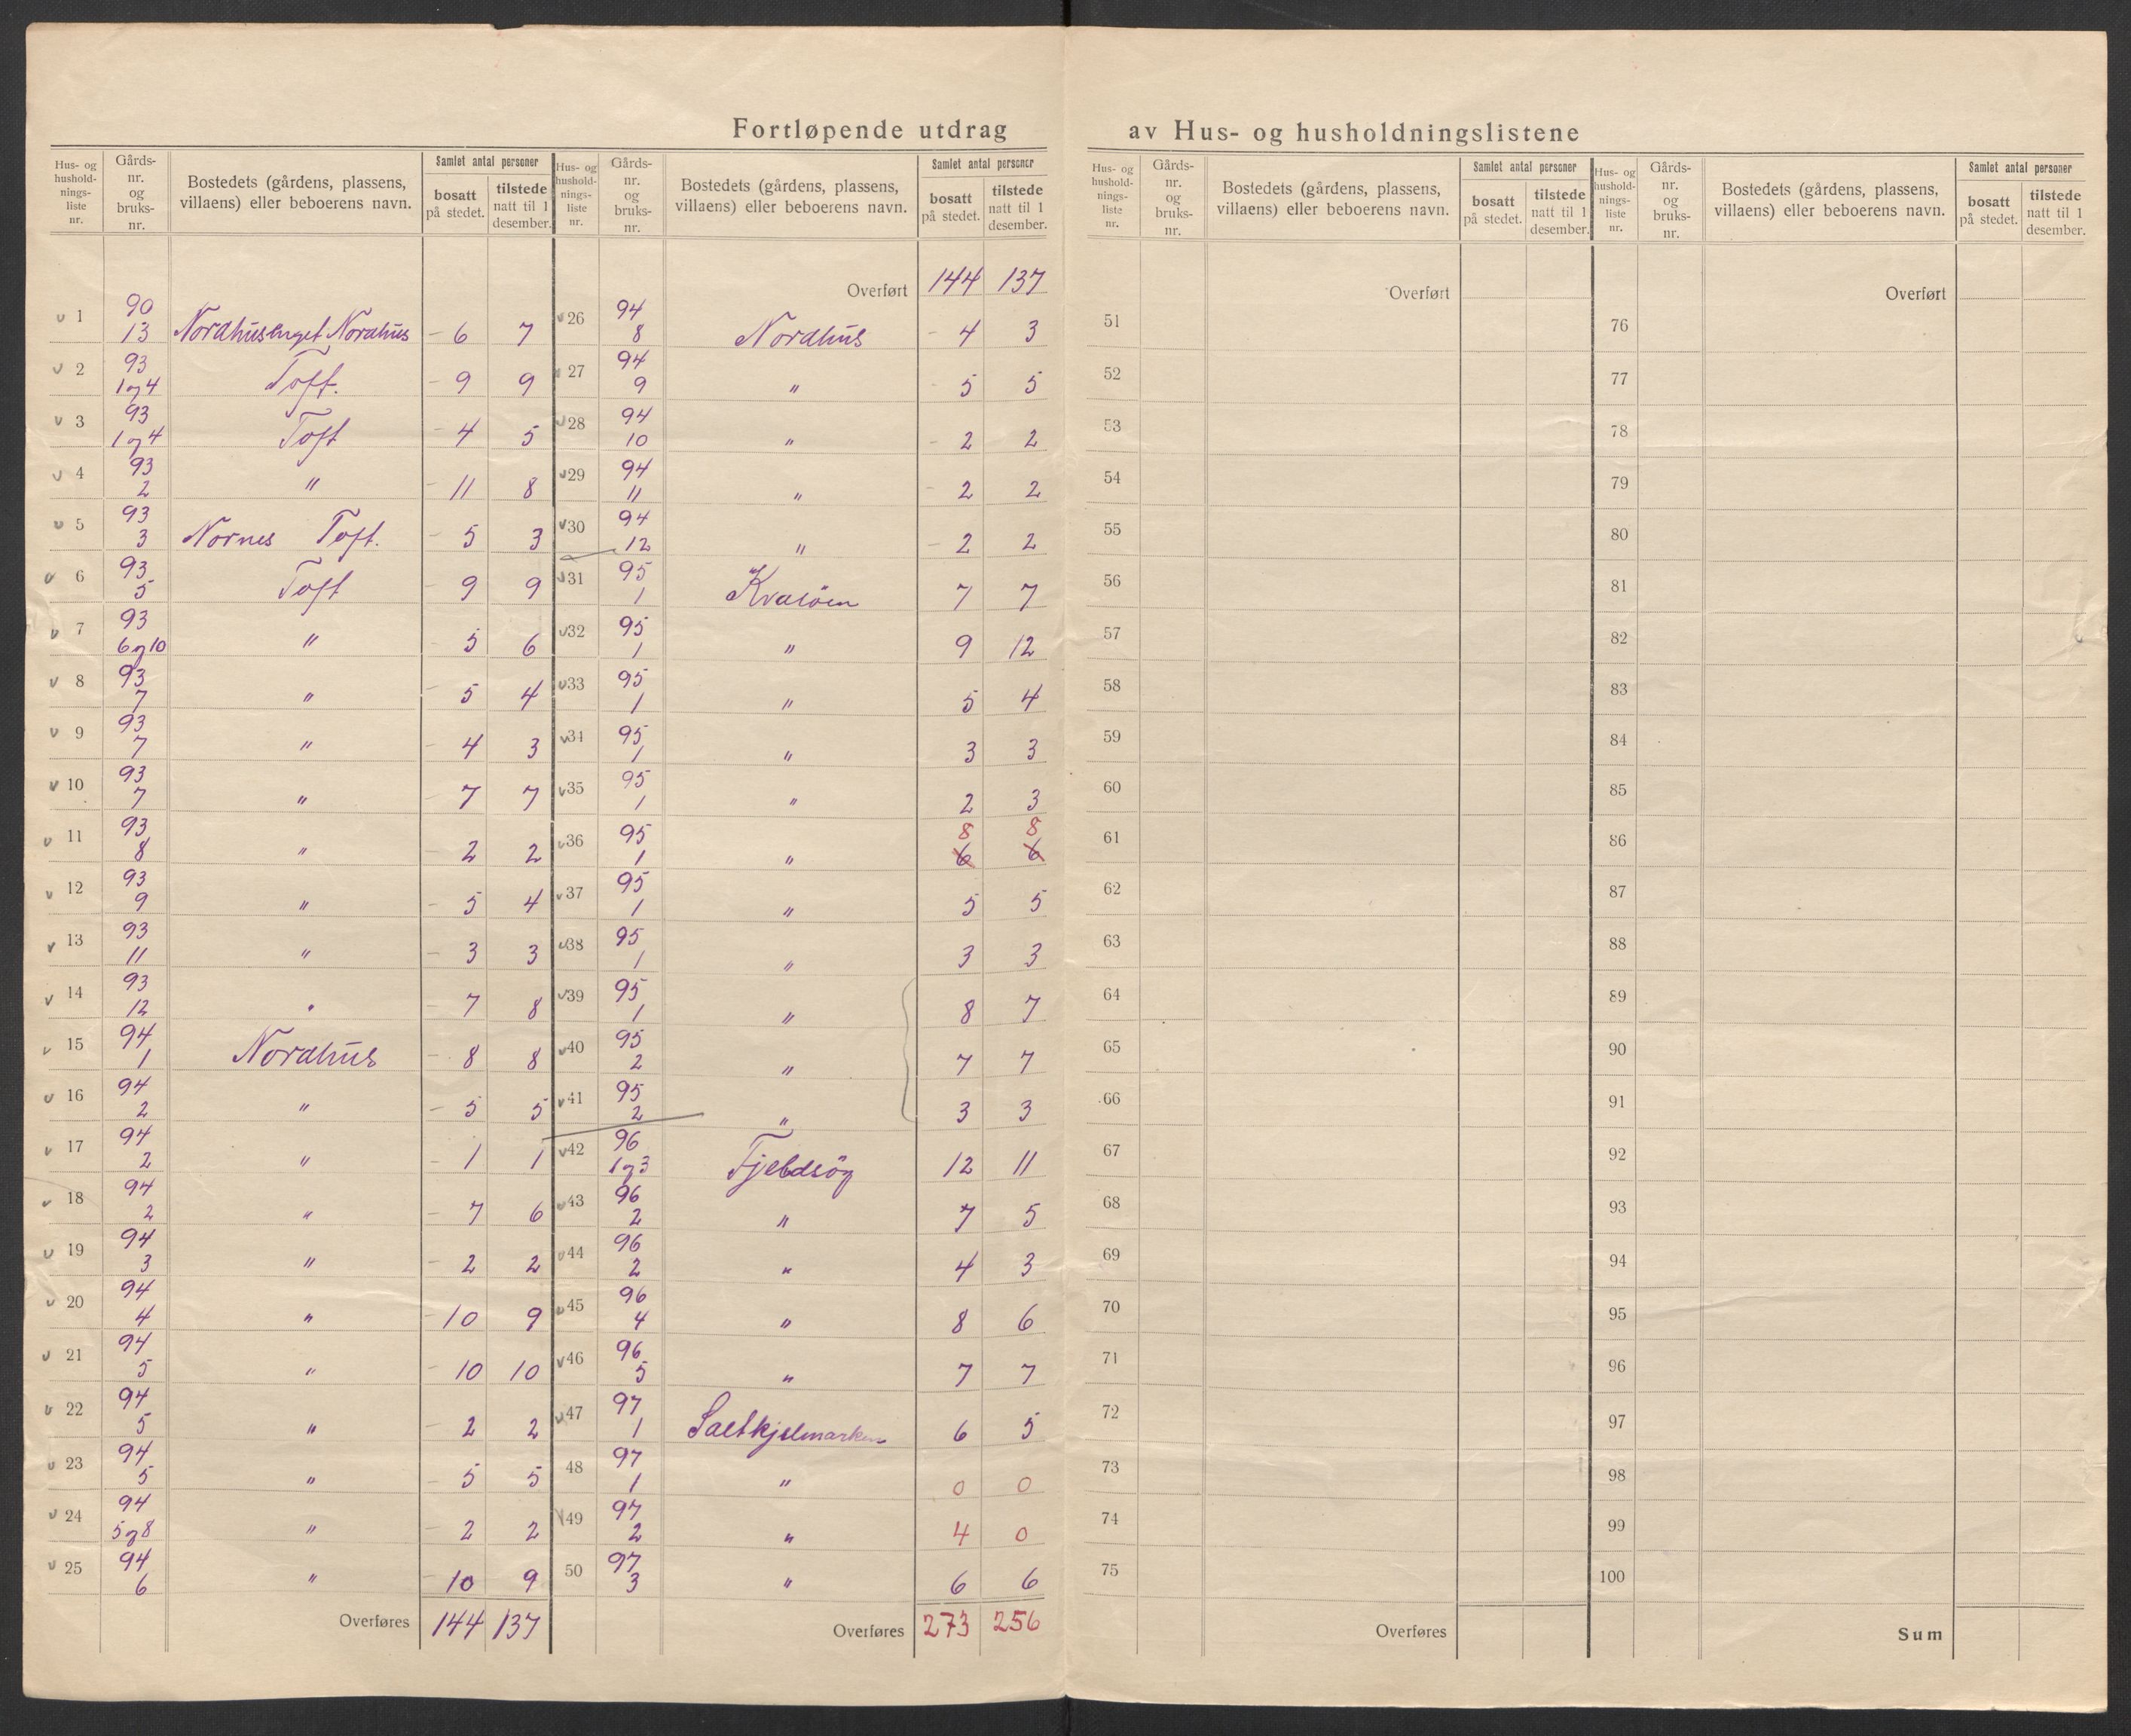 Fortløpende utdrag av Hus- og husholdningslistene
Hus- og husholdnings-liste nr. | Gårds-nr. og bruks-nr. | Bostedets (gårdens, plassens, villaens) eller beboerens navn. | Samlet antal personer | bosatt på stedet. | tilstede natt til 1 desember.
1 | 90 13 | Nordhusenget Nordhus | 6 | 7
2 | 93 1 og 4 | Toft. | 9 | 9
3 | 93 1 og 4 | Toft | 4 | 5
4 | 93 2 | " | 11 | 8
5 | 93 3 | Nornes Toft. | 5 | 3
6 | 93 5 | Toft | 9 | 9
7 | 93 6 og 10 | " | 5 | 6
8 | 93 7 | " | 5 | 4
9 | 93 7 | " | 4 | 3
10 | 93 7 | " | 7 | 7
11 | 93 8 | " | 2 | 2
12 | 93 9 | " | 5 | 4
13 | 93 11 | " | 3 | 3
14 | 93 12 | " | 7 | 8
15 | 94 1 | Nordhus | 8 | 8
16 | 94 2 | " | 5 | 5
17 | 94 2 | " | 1 | 1
18 | 94 2 | " | 7 | 6
19 | 94 3 | " | 2 | 2
20 | 94 4 | " | 10 | 9
21 | 94 5 | " | 10 | 10
22 | 94 5 | " | 2 | 2
23 | 94 5 | " | 5 | 5
24 | 94 5 og 8 | " | 2 | 2
25 | 94 6 | " | 10 | 9
Overføres 144 137
Hus- og husholdnings-liste nr. | Gårds-nr. og bruks-nr. | Bostedets (gårdens, plassens, villaens) eller beboerens navn. | Samlet antal personer | bosatt på stedet. | tilstede natt til 1 desember.
Overført 144 137
26 | 94 8 | Nordhus | 4 | 3
27 | 94 9 | " | 5 | 5
28 | 94 10 | " | 2 | 2
29 | 94 11 | " | 2 | 2
30 | 94 12 | " | 2 | 2
31 | 95 1 | Kvasöen | 7 | 7
32 | 95 1 | " | 9 | 12
33 | 95 1 | " | 5 | 4
34 | 95 1 | " | 3 | 3
35 | 95 1 | " | 2 | 3
36 | 95 1 | " | 8 6 | 8 6
37 | 95 1 | " | 5 | 5
38 | 95 1 | " | 3 | 3
39 | 95 1 | " | 8 | 7
40 | 95 2 | " | 7 | 7
41 | 95 2 | " | 3 | 3
42 | 96 1 og 3 | Fjeldsöy | 12 | 11
43 | 96 2 | " | 7 | 5
44 | 96 2 | " | 4 | 3
45 | 96 4 | " | 8 | 6
46 | 96 5 | " | 7 | 7
47 | 97 1 | Saltkjelmarken | 6 | 5
48 | 97 1 | " | 0 | 0
49 | 97 2 | " | 4 | 0
50 | 97 3 | " | 6 | 6
Overføres 273 256
Hus- og husholdnings-liste nr. | Gårds-nr. og bruks-nr. | Bostedets (gårdens, plassens, villaens) eller beboerens navn. | Samlet antal personer | bosatt på stedet. | tilstede natt til 1 desember.
Overført
51
52
53
54
55
56
57
58
59
60
61
62
63
64
65
66
67
68
69
70
71
72
73
74
75
Overføres
Hus- og husholdnings-liste nr. | Gårds-nr. og bruks-nr. | Bostedets (gårdens, plassens, villaens) eller beboerens navn. | Samlet antal personer | bosatt på stedet. | tilstede natt til 1 desember.
Overført
76
77
78
79
80
81
82
83
84
85
86
87
88
89
90
91
92
93
94
95
96
97
98
99
100
Sum